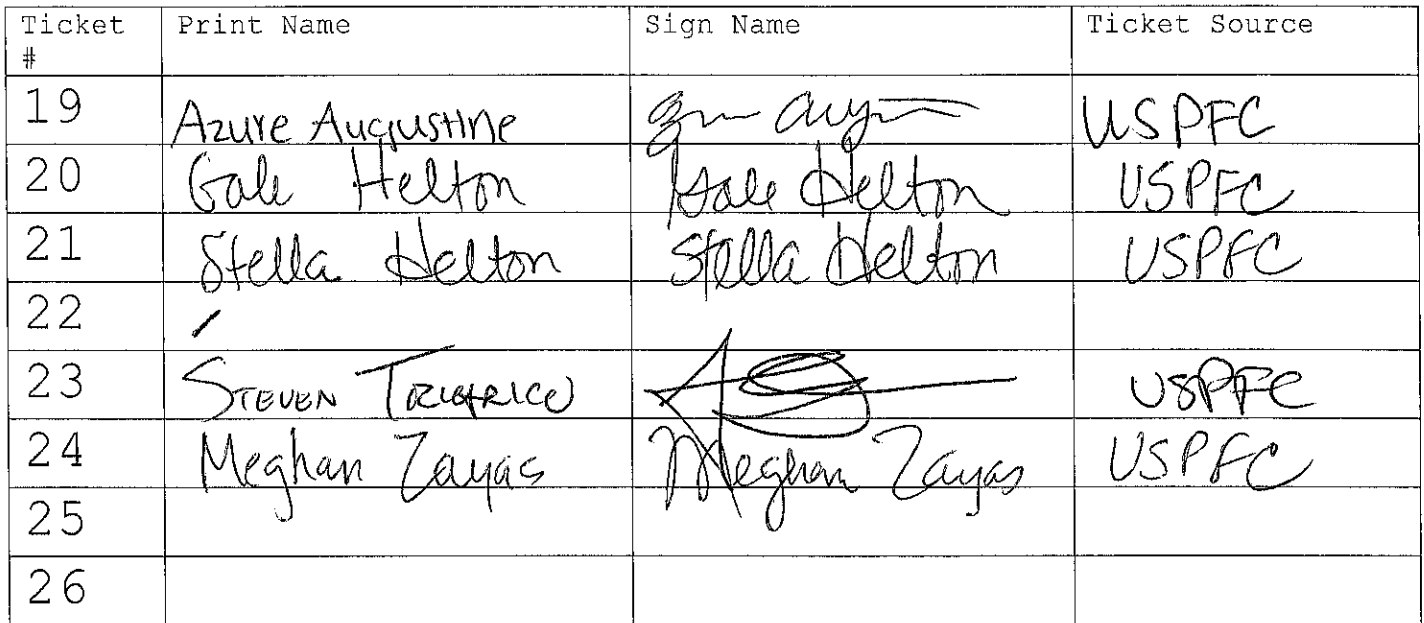 Ticket # Print Name Sign Name Ticket Source
19 Azure Augustine USPFC
20 Gale Helton Gale Helton USPFC
21 Stella Helton Stella Helton USPFC
22
23 STEVEN USPFC
24 Meghan Zayas Meghan Zayas USPFC
25
26